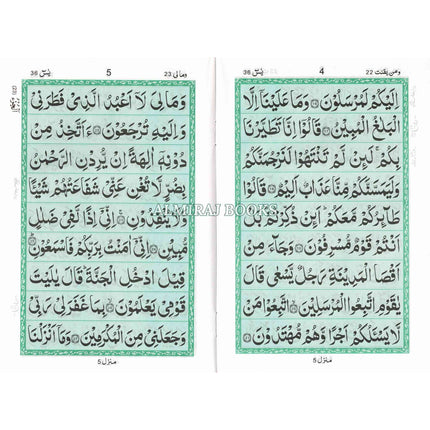 وَمَن يَّقْنُتْ ٢٢ 4 يٰسٓ ٣٦
اِلَيْكُمْ لَمُرْسَلُوْنَ ۝ وَمَا عَلَيْنَآ اِلَّا
الْبَلٰغُ الْمُبِيْنُ ۝ قَالُوْٓا اِنَّا تَطَيَّرْنَا
بِكُمْ ۚ لَئِنْ لَّمْ تَنْتَهُوْا لَنَرْجُمَنَّكُمْ
وَلَيَمَسَّنَّكُمْ مِّنَّا عَذَابٌ اَلِيْمٌ ۝ قَالُوْا
طَآئِرُكُمْ مَّعَكُمْ ؕ اَئِنْ ذُكِّرْتُمْ ؕ بَلْ
اَنْتُمْ قَوْمٌ مُّسْرِفُوْنَ ۝ وَجَآءَ مِنْ
اَقْصَا الْمَدِيْنَةِ رَجُلٌ يَّسْعٰى قَالَ
يٰقَوْمِ اتَّبِعُوا الْمُرْسَلِيْنَ ۝ اتَّبِعُوْا مَنْ
لَّا يَسْـَٔلُكُمْ اَجْرًا وَّهُمْ مُّهْتَدُوْنَ ۝
منزل ٥
وَمَالِيَ 23 5 يٰسٓ 36
وَمَا لِيَ لَآ اَعْبُدُ الَّذِيْ فَطَرَنِيْ
وَاِلَيْهِ تُرْجَعُوْنَ ۝ ءَاَتَّخِذُ مِنْ
دُوْنِهٖٓ اٰلِهَةً اِنْ يُّرِدْنِ الرَّحْمٰنُ
بِضُرٍّ لَّا تُغْنِ عَنِّيْ شَفَاعَتُهُمْ شَيْـًٔا
وَّلَا يُنْقِذُوْنِ ۝ اِنِّيْٓ اِذًا لَّفِيْ ضَلٰلٍ
مُّبِيْنٍ ۝ اِنِّيْٓ اٰمَنْتُ بِرَبِّكُمْ فَاسْمَعُوْنِ ۝
قِيْلَ ادْخُلِ الْجَنَّةَ ؕ قَالَ يٰلَيْتَ
قَوْمِيْ يَعْلَمُوْنَ ۝ بِمَا غَفَرَ لِيْ رَبِّيْ
وَجَعَلَنِيْ مِنَ الْمُكْرَمِيْنَ ۝ وَمَآ اَنْزَلْنَا
منزل ٥
ALMIRAJ BOOKS